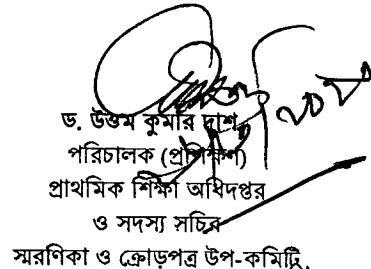 ড. উত্তম কুমার দাশ
পরিচালক (প্রশিক্ষণ)
প্রাথমিক শিক্ষা অধিদপ্তর
ও সদস্য সচিব
স্মরণিকা ও ক্রোড়পত্র উপ-কমিটি.